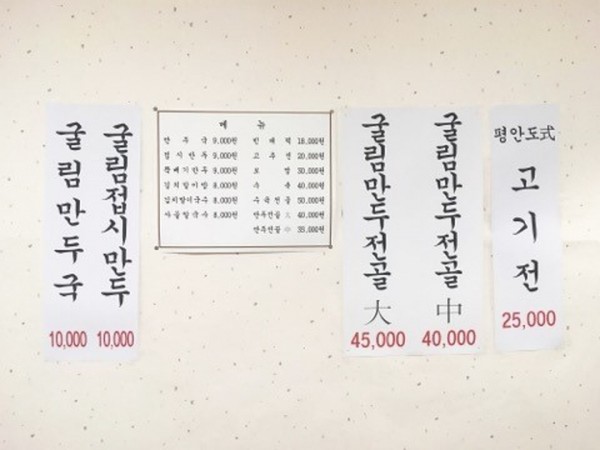 굴림만두국
10,000
굴림접시만두
10,000
메 뉴
만 두 국 9,000원
접 시 만 두 9,000원
뚝배기만두 9,000원
김치말이밥 8,000원
김치말이국수 8,000원
사골칼국수 8,000원
빈 대 떡 18,000원
고 추 전 20,000원
30,000원
수 육 40,000원
수육전골 50,000원
만두전골 大 40,000원
만두전골 中 35,000원
굴림만두전골 大
45,000
굴림만두전골 中
40,000
평안도式
고기전
25,000